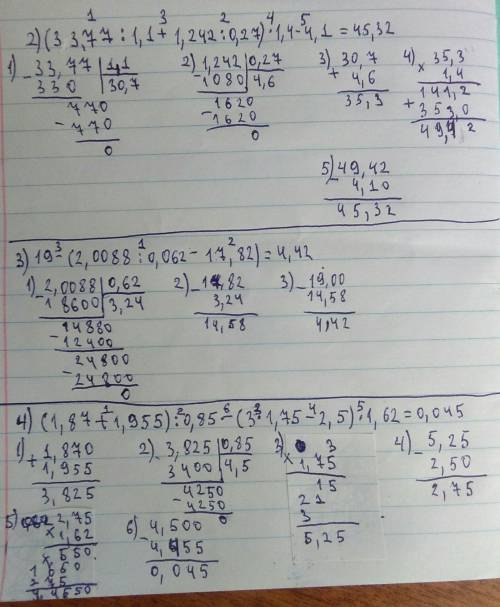 1 3 2 4 5
2) (33,77 : 1,1 + 1,242 : 0,27) · 1,4 - 4,1 = 45,32
1) - 33,77 | 1,1 2) - 1,242 | 0,27 3) 30,7 4) 35,3
330 | 30,7 1080 | 4,6 + 4,6 × 1,4
770 1620 35,3 141,2
- 770 - 1620 + 353,0
0 0 49,42
5) - 49,42
4,10
45,32
3 1 2
3) 19 - (2,0088 : 0,062 - 17,82) = 4,42
1) - 2,0088 | 0,62 2) - 17,82 3) - 19,00
18600 | 3,24 3,24 14,58
14880 14,58 4,42
- 12400
24800
- 24800
0
1 2 6 3 4 5
4) (1,87 + 1,955) : 0,85 - (3 · 1,75 - 2,5) · 1,62 = 0,045
1) + 1,870 2) - 3,825 | 0,85 3) 3 4) - 5,25
1,955 3400 | 4,5 × 1,75 2,50
3,825 4250 15 2,75
- 4250 21
0 3
5,25
5) 2,75 6) - 4,500
× 1,62 4,455
550 0,045